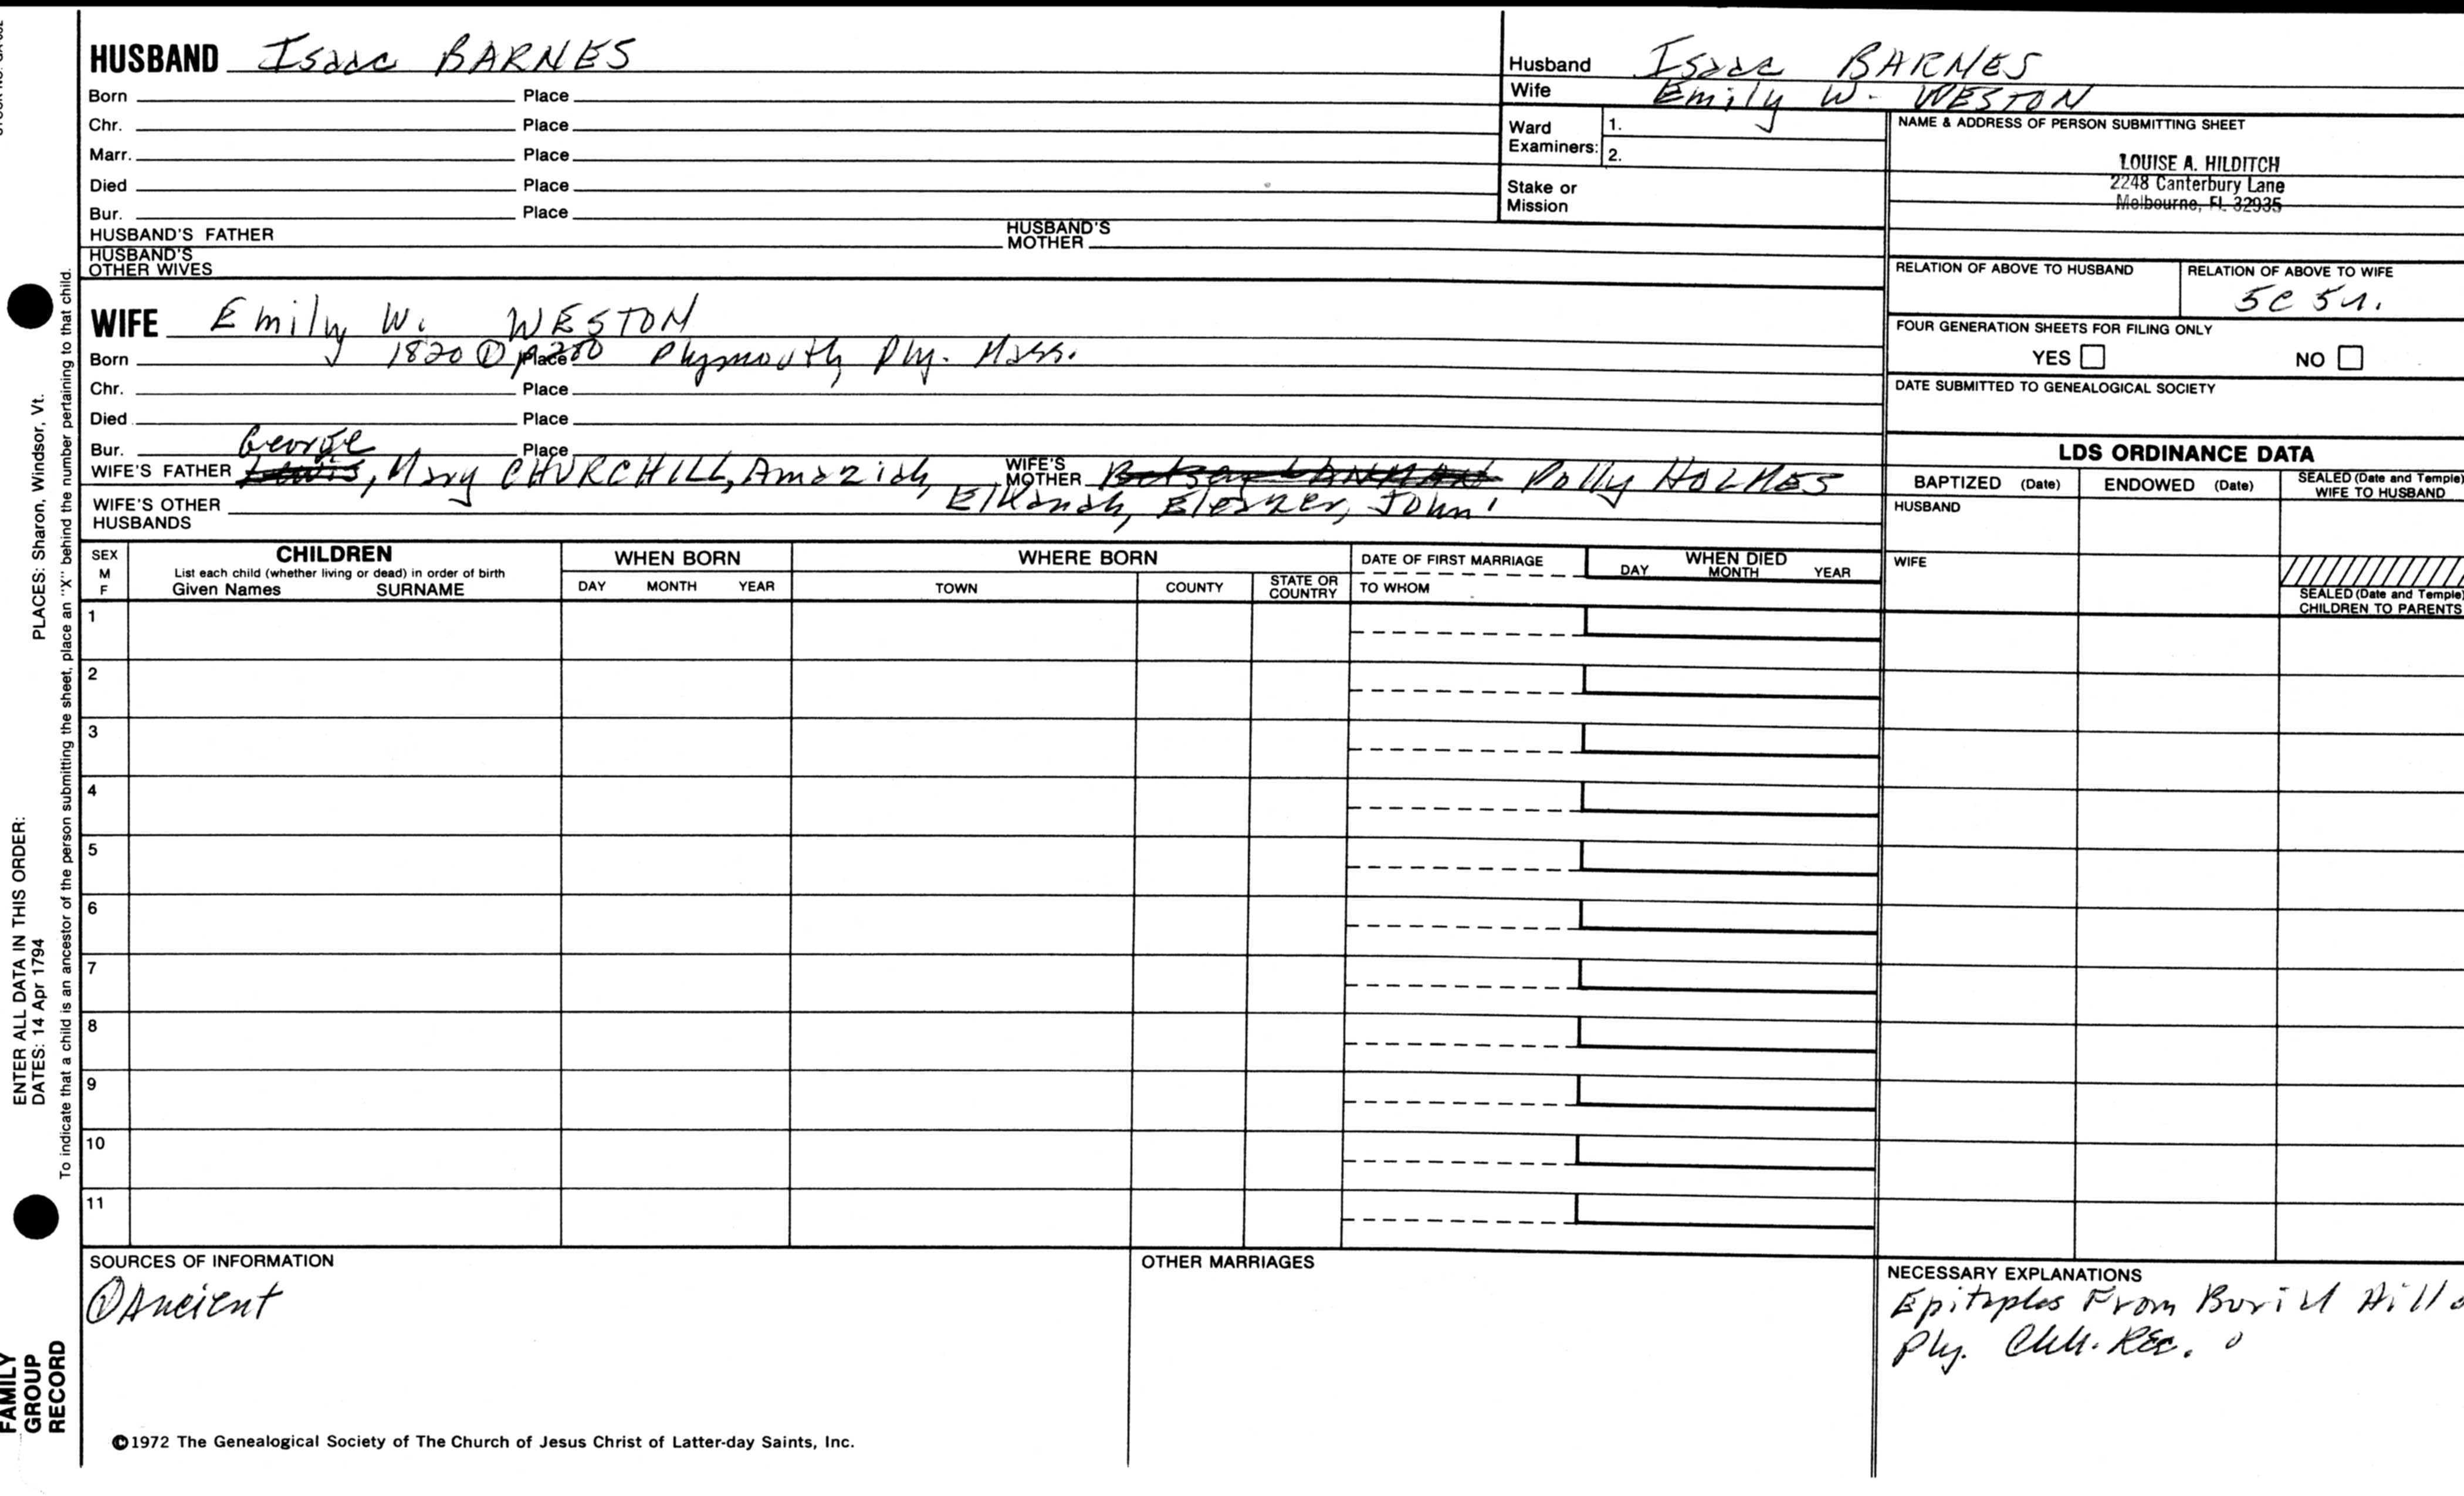 HUSBAND Isaac BARNES
Born Place
Chr. Place
Marr. Place
Died Place
Bur. Place
HUSBAND'S FATHER HUSBAND'S MOTHER
HUSBAND'S OTHER WIVES
Husband Isaac BARNES
Wife Emily W. WESTON
Ward Examiners: 1.
2.
Stake or Mission
NAME & ADDRESS OF PERSON SUBMITTING SHEET
LOUISE A. HILDITCH
2248 Canterbury Lane
Melbourne, FL 32935
RELATION OF ABOVE TO HUSBAND RELATION OF ABOVE TO WIFE
5C 5r.
FOUR GENERATION SHEETS FOR FILING ONLY
YES NO
DATE SUBMITTED TO GENEALOGICAL SOCIETY
WIFE Emily W. WESTON
Born 1820 ① p280 Place Plymouth, Ply. Mass.
Chr. Place
Died Place
Bur. Place
George
WIFE'S FATHER Lewis, Mary CHURCHILL, Amaziah, WIFE'S MOTHER Betsey LANMAN Polly HOLMES
Elkanah, Eleazer, John
WIFE'S OTHER HUSBANDS
LDS ORDINANCE DATA
BAPTIZED (Date) ENDOWED (Date) SEALED (Date and Temple) WIFE TO HUSBAND
HUSBAND
WIFE
SEALED (Date and Temple) CHILDREN TO PARENTS
SEX M F CHILDREN WHEN BORN WHERE BORN DATE OF FIRST MARRIAGE WHEN DIED
List each child (whether living or dead) in order of birth
Given Names SURNAME DAY MONTH YEAR TOWN COUNTY STATE OR COUNTRY TO WHOM DAY MONTH YEAR
1
2
3
4
5
6
7
8
9
10
11
SOURCES OF INFORMATION
① Ancient
OTHER MARRIAGES
NECESSARY EXPLANATIONS
Epitaphs From Burial Hill
Ply. Chh. Rec.
©1972 The Genealogical Society of The Church of Jesus Christ of Latter-day Saints, Inc.
PLACES: Sharon, Windsor, Vt.
To indicate that a child is an ancestor of the person submitting the sheet, place an "X" behind the number pertaining to that child.
ENTER ALL DATA IN THIS ORDER:
DATES: 14 Apr 1794
FAMILY
GROUP
RECORD